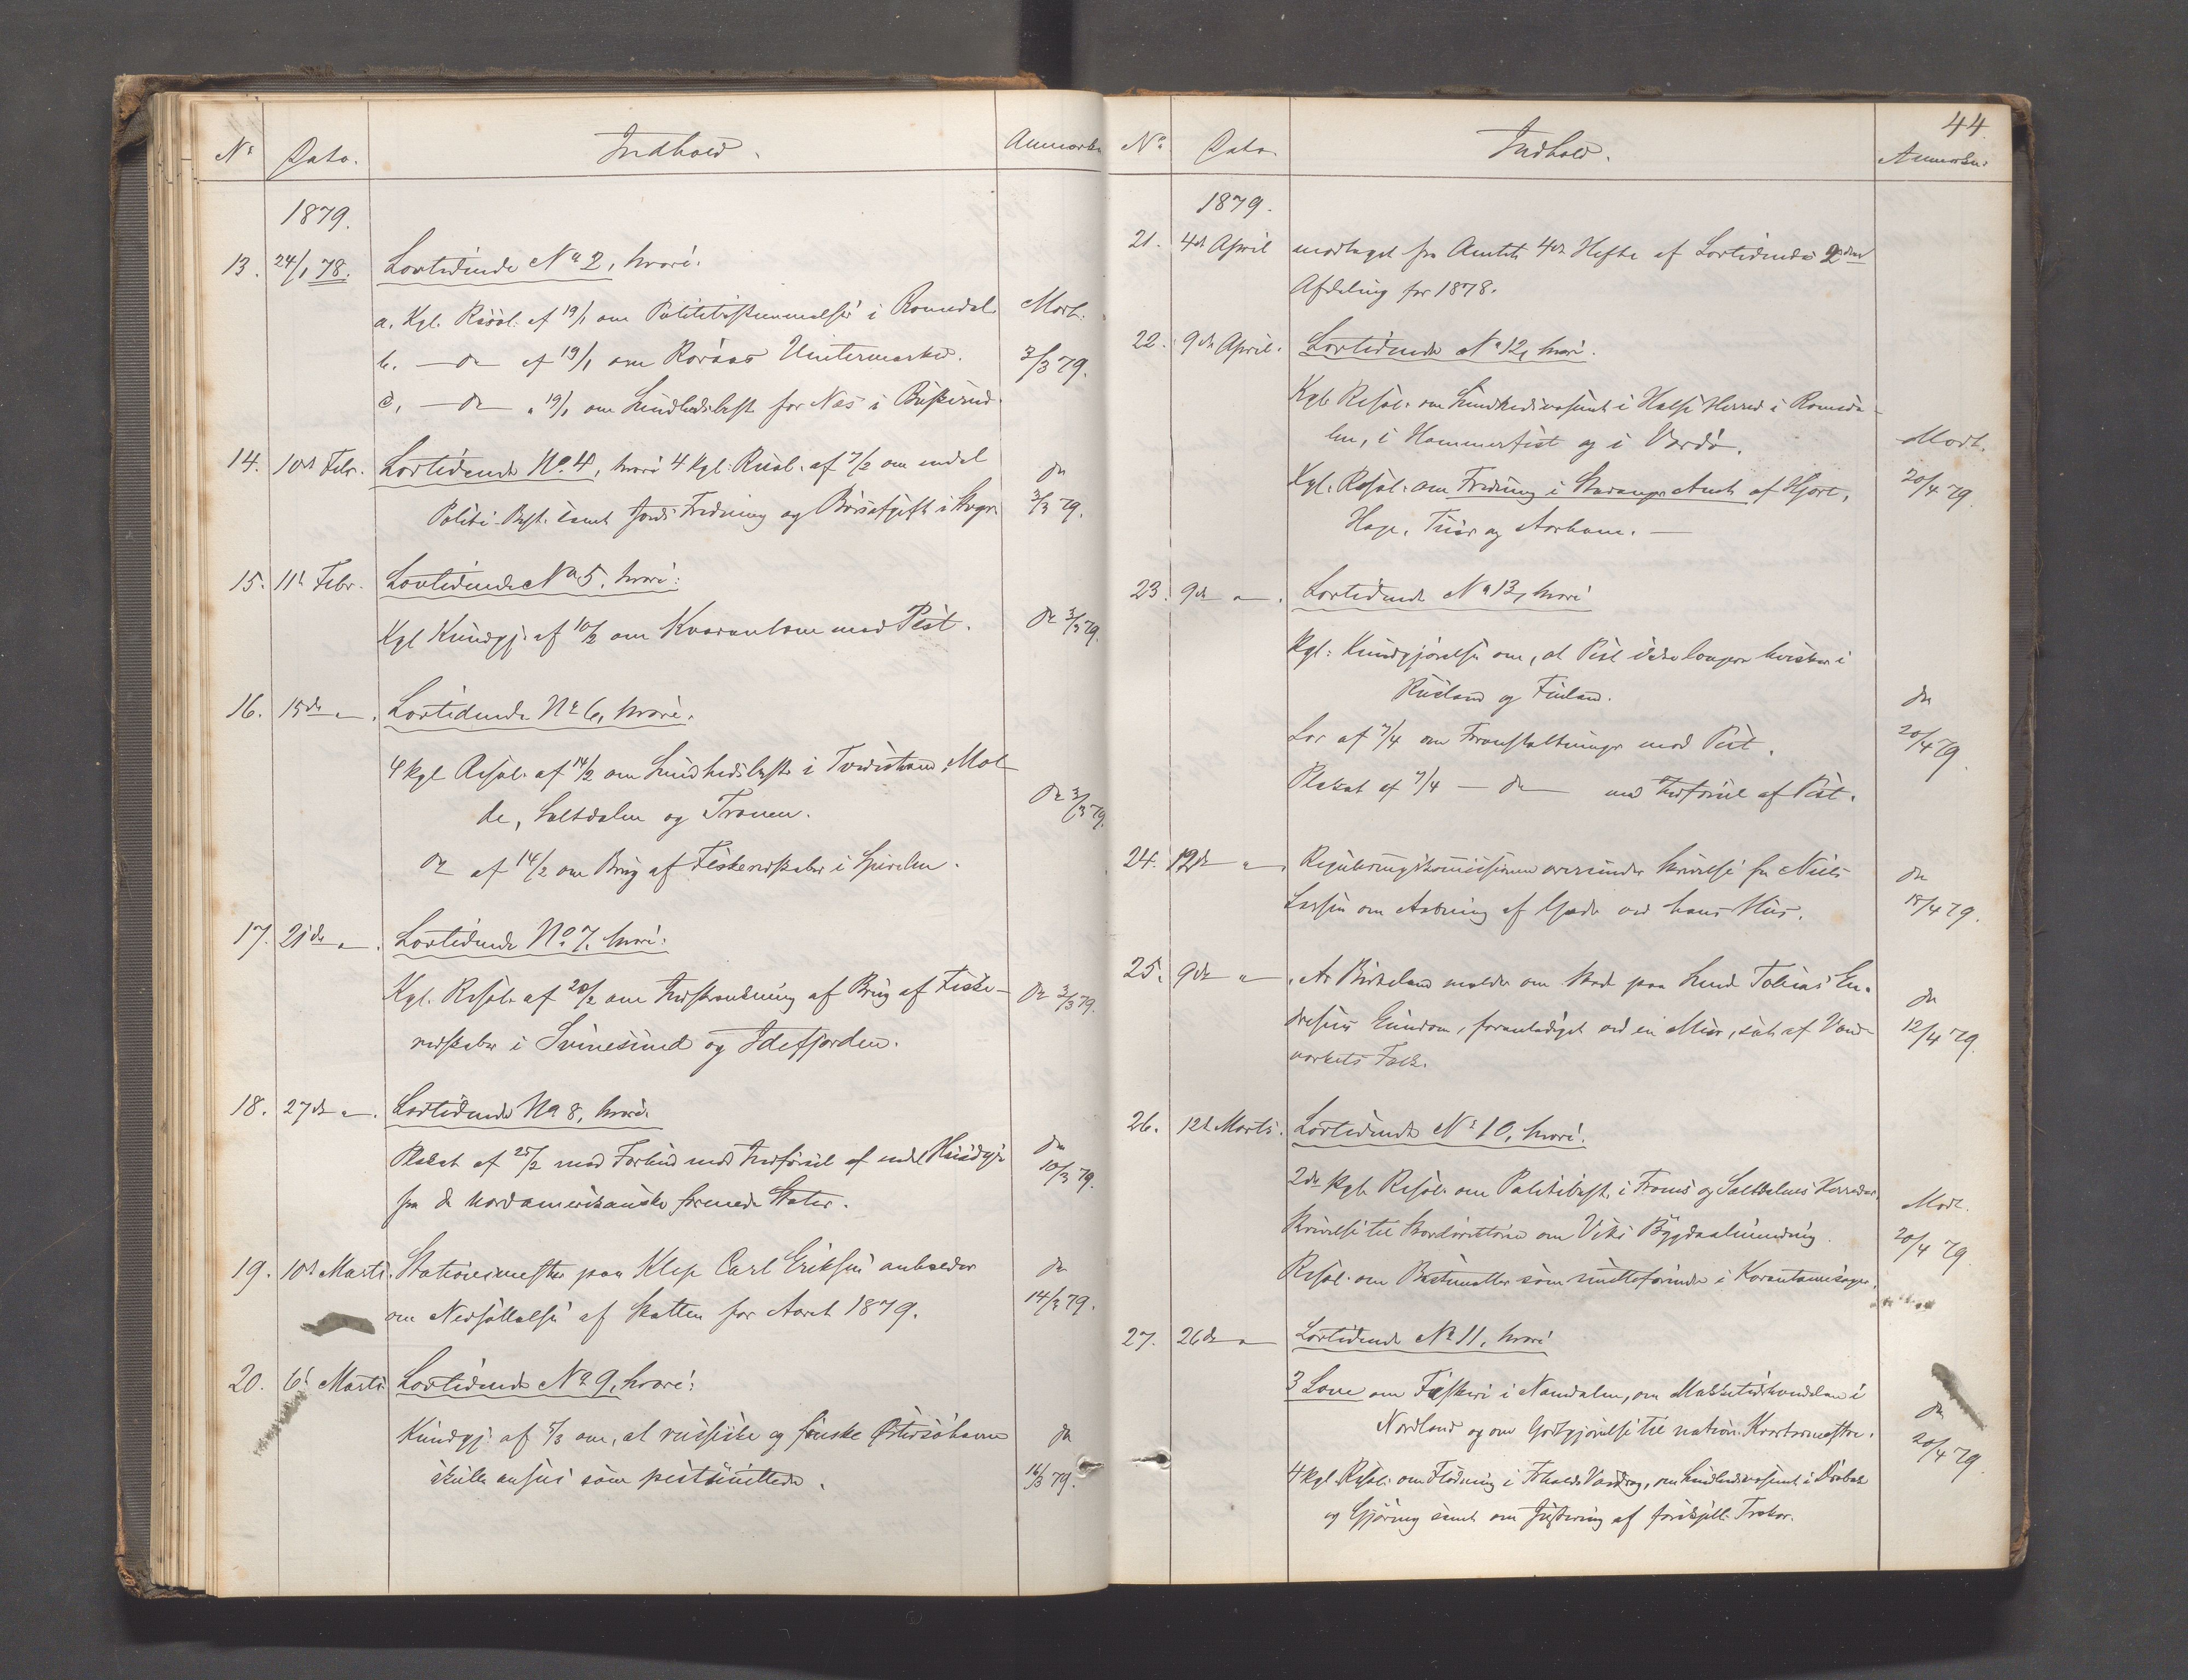 No Dato. Indhold. Anmærkn
1879.
13. 24/1 78. Lovtidende No 2, hvori:
a. Kgl. Resol. af 19/1 om Politibestemmelser i Romsdal Modt.
b. — do — af 19/1 om Røraas Vintermarked. 3/3 79.
c. — do — " 19/1 om Sundhedsbest. for Næs i Buskerud.
14. 10de Febr. Lovtidende No. 4, hvori 4 Kgl. Resol. af 7/2 om endel do
Politi-Best. samt Fredning og 3/3 79.
15. 11te Febr. Lovtidende No 5, hvori:
Kgl Kundgj. af 10/2 om Kvarantæne mod Pest. do 3/3 79.
16. 15de " Lovtidende No 6, hvori:
4 kgl Resol. af 14/2 om Sundhedsbest. i Tvedestrand, Mol-
de, Saltdalen og Tromøen. do 3/3 79.
do af 14/2 om Brug af Fiskeredskaber i
17. 21de " Lovtidende No. 7, hvori:
Kgl. Resol. af 20/2 om Indskrænkning af Brug af Fiske- do 3/3 79.
redskaber i Svinesund og Idefjorden.
18. 27de " Lovtidende No 8, hvori.
Plakat af 25/2 med Forbud mod Indførsel af endel Huusdyr do
fra de nordamerikanske forenede Stater. 10/3 79.
19. 10de Marts. Stationsmester paa Klep Carl Eriksen anholder do
om Nedsættelse af Skatten for Aaret 1879. 14/3 79.
20. 6te Marts Lovtidende No 9, hvori:
Kundgj. af 5/3 om, at russiske og finske Østersøhavne do
skulle ansees som pestsmittede. 16/3 79.
44.
No Dato. Indhold. Anmærkn.
1879.
21. 4de April modtaget fra Amtet 4de Hefte af Lovtidendes 2den
Afdeling for 1878.
22. 9de April. Lovtidende No 12, hvori.
Kgl. Resol. om Sundhedsvæsenet i Halse Herred i Romsda-
len, i Hammerfest og i Vardø. Modt.
Kgl. Resol. om Fredning i Stavanger Amt af Hjort, 20/4 79.
Hare, Tiur og Aarhane. —
23. 9de " Lovtidende No 13, hvori
Kgl. Kundgjørelse om, at Pest ikke længere hersker i
Rusland og Finland. do
Lov af 7/4 om Foranstaltninger mod Pest. 20/4 79.
Plakat af 7/4 — do — mod Indførsel af Pest.
24. 12de " Reguleringskommissionen oversender Skrivelse fra Niels do
Larsen om Aabning af Gade ved hans Huus. 15/4 79.
25. 9de " A. Birkeland melder om Skade paa Lund Tobias En- do
dresens Eiendom, foranlediget ved en Muur, sat af Vand- 12/4 79.
værkets Folk.
26. 12te Marts. Lovtidende No 10, hvori.
2de kgl. Resol. om Politibest. i Froms og Saltdalens Herreder. Modt.
Skrivelse til om Viks Bygdealminding. 20/4 79
Resol. om Bestemmelser som i Karantænesager.
27. 26de " Lovtidende No 11, hvori
3 Love om Fiskeri i Namdalen, om i do
Nordland og om Godtgjørelse til nation. Kvartermestre. 20/4 79
4 kgl. Resol. om Flødning i Vasdrag, om Sundhedsvæsenet i Drøbak
og Gjøring samt om Justering af forskjell.